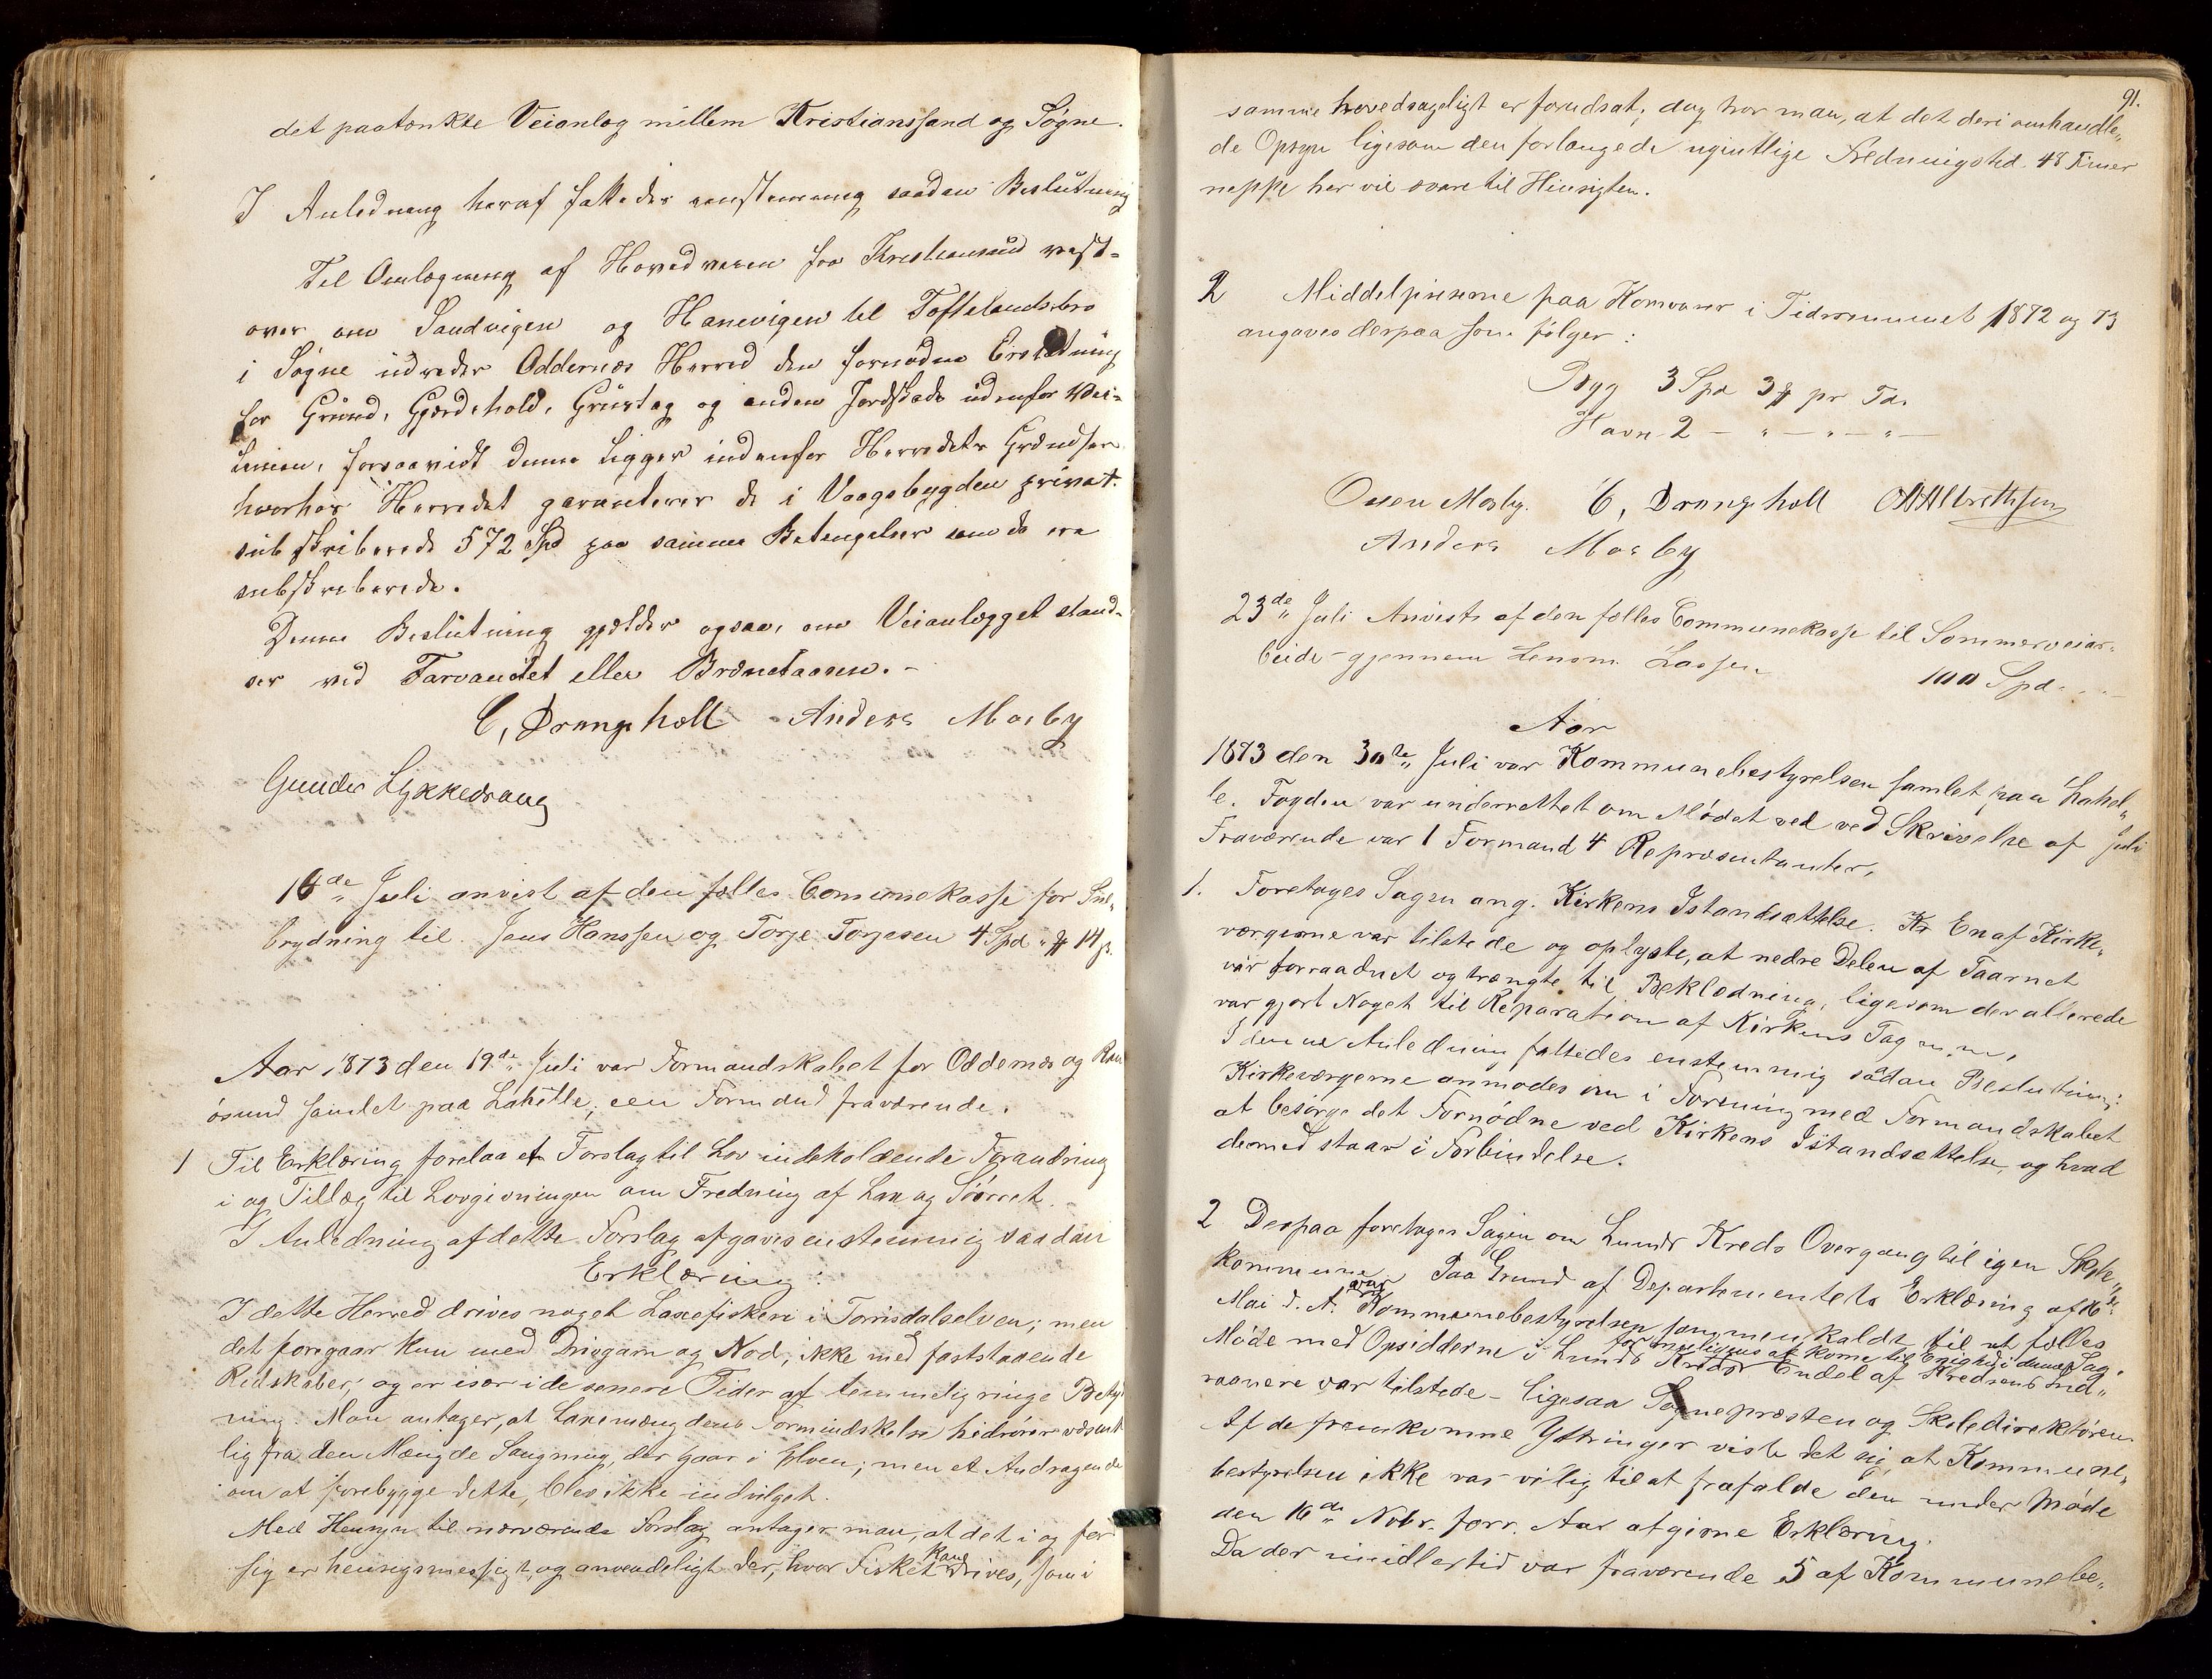 det paatænkte Veianlæg mellem Kristianssand og Søgne.
I Anledning heraf fattedes eenstemmig saadan Beslutning
Til Omlægning af Hovedveien fra Kristiansand vest-
over om Sandvigen og Hanevigen til Toftelandsbro
i Søgne udreder Oddernæs Herred den fornødne Erstatning
for Grund, Gjærdehold, Grustag og anden Jordskade udenfor Vei-
Linien, forsaavidt denne ligger indenfor Herredets Grændser
hvorhos Herredet garanterer de i Vaagsbygden privat
subskriberede 572 Spd paa samme Betingelser som de ere
subskriberede.
Denne Beslutning gjælder ogsaa, om Veianlægget stand-
ser ved Farvandet eller Brænctaasen.-
C, Drangsholt Anders Mosby
Gunder Lykkedrang
16de Juli anvist af den fælles Comunekasse for Sne-
brydning til Jens Hanssen og Torje Torjesen 4 Spd " ₰ 14 s.
Aar 1873 den 19de Juli var Formandskabet for Oddernæs og Ran
øsund samlet paa Lahelle, een Formand fraværende.
1 Til Erklæring forelaa et Forslag til Lov indeholdende Forandring
i og Tillæg til Lovgivningen om Fredning af Lax og Søørret.
I Anledning af dette Forslag afgaves enstemmig saadan
Erklæring:
I dette Herred drives noget Laxefiskeri i Torrisdalselven; men
det foregaar kun med Drivgarn og Nod, ikke med faststaaende
Redskaber, og er især i de senere Tider af temmelig ringe Betyd
ning. Man antager, at Laxemængdens Formindskelse hidrører væsent
lig fra den Mængde Saugmug, der gaar i Elven; men et Andragende
om at forebygge dette, blev ikke indvilget.
Med Hensyn til nærværende Forslag antager man, at det i og for
sig er hensigsmessigt og anvendeligt der, hvor Fisket kan drives, som i
91.
samme hovedsageligt er forudsat; dog tror man, at det deri omhandle"
de Opsyn ligesom den forlængede ugintlige Fredningstid 48 Timer
neppe her vil svare til Hensigten.
2 Middelpriserne paa Kornvarer i Tidsrummet 1872 og 73
angaves derpaa som følger:
Byg 3 Spd 3 ₰ pr Td.
Havre 2 — " — " — " —
Osuen Mosby. C, Drangsholt OAAlbrethsen
Anders Mosby
23de Juli Anviste af den fælles Communekasse til Sommerveiar-
beide gjennem Lensm. Lassen 100 Spd. . .
Aar
1873 den 30te Juli var Kommunebestyrelsen samlet paa Lahel"
le. Fogden var underrettet om Mødet ved ved Skrivelse af Juli
Fraværende var 1 Formand 4 Repræsentanter.
1. Foretages Sagen ang. Kirkens Istandsættelse. Kr En af Kirke"
værgerne var tilstede og oplyste, at nedre Delen af Taarnet
var forraadnet og trængte til Beklædning, ligesom der allerede
var gjort Noget til Reparation af Kirkens Tag m. m.
I denne Anledning fattedes enstemmig sadan Beslutning:
Kirkeværgerne anmodes om i Forening med Formandskabet
at besørge det Fornødne ved Kirkens Istandsættelse, og hvad
dermed staar i Forbindelse.
2 Derpaa foretages Sagen om Lunds Kreds Overgang til egen Skole"
kommune. Paa Grund af Departementets Erklæring af 16de
Mai d. A. var Kommunebestyrelsen sammenkaldt til et fælles
Møde med Opsidderne i Lunds Kreds for muligens at kome til Enighed i denne Sag. Endel af Kredsens Ind"
vaanere var tilstede - ligesaa Sognepræsten og Skoledirektøren.
Af de fremkomne Yttringer viste det sig, at Kommune"
bestyrelsen ikke var villig til at frafalde den under Møde
den 16de Novbr. forr. Aar afgivne Erklæring.
Da der imidlertid var fraværende 5 af Kommunebe"